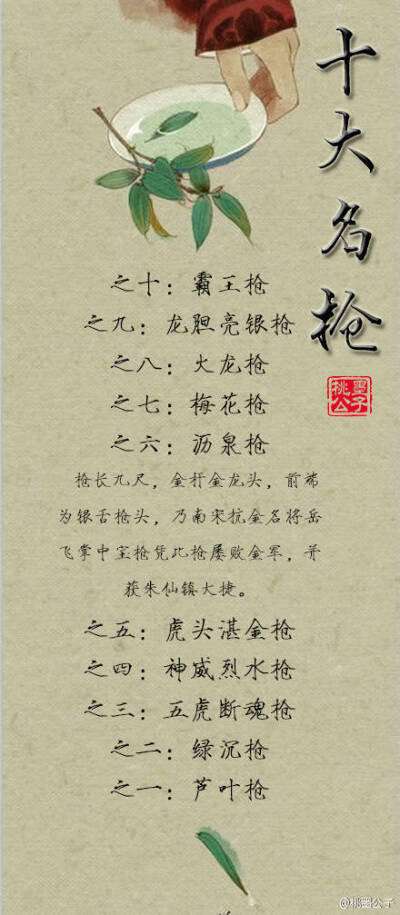 十大名枪
桃墨
公子
之十：霸王枪
之九：龙胆亮银枪
之八：火龙枪
之七：梅花枪
之六：沥泉枪
枪长九尺，金杆金龙头，前端
为银舌枪头，乃南宋抗金名将岳
飞掌中宝枪凭此枪屡败金军，并
获朱仙镇大捷。
之五：虎头湛金枪
之四：神威烈水枪
之三：五虎断魂枪
之二：绿沉枪
之一：芦叶枪
@桃墨公子